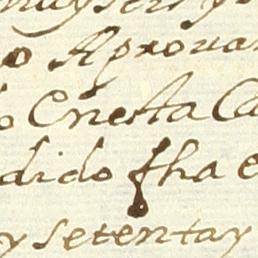 o Aprouar
o Enesta Ca
dido fha e
y setenta y